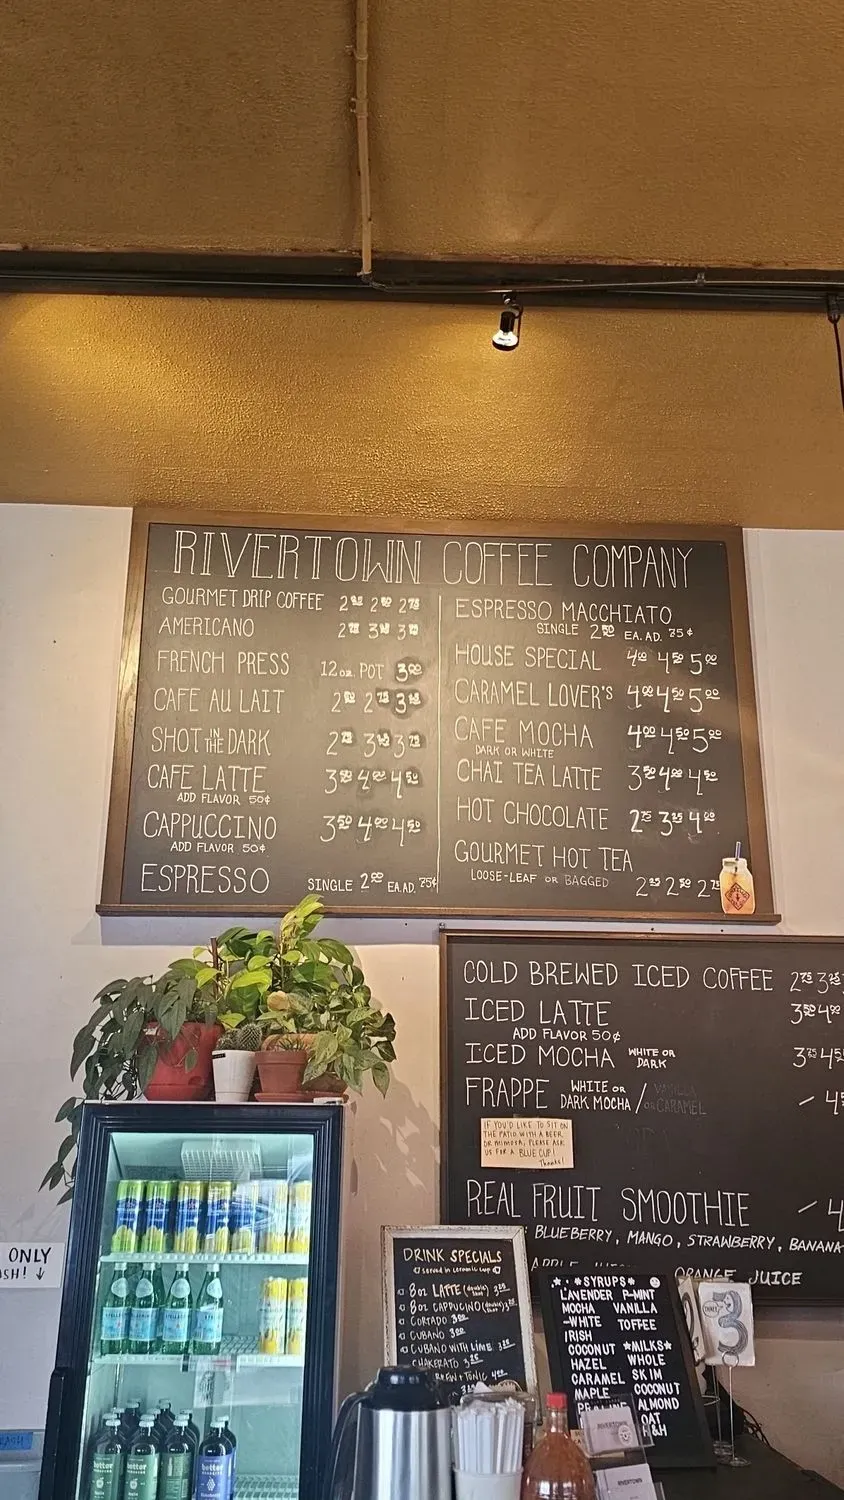 RIVERTOWN COFFEE COMPANY
GOURMET DRIP COFFEE 2 2 2 75
AMERICANO
FRENCH PRESS 12oz. POT 3 00
CAFE AU LAIT
SHOT IN THE DARK
CAFE LATTE 3 50 4 00 4 50
ADD FLAVOR 50¢
CAPPUCCINO 3 50 4 00 4 50
ADD FLAVOR 50¢
ESPRESSO SINGLE 2 00 EA. AD. 75¢
ESPRESSO MACCHIATO
SINGLE 2 50 EA. AD. 75¢
HOUSE SPECIAL 4 00 4 50 5 00
CARAMEL LOVER'S 4 00 4 50 5 00
CAFE MOCHA 4 00 4 50 5 00
DARK OR WHITE
CHAI TEA LATTE 3 50 4 00 4 50
HOT CHOCOLATE 2 75 3 25 4 00
GOURMET HOT TEA
LOOSE-LEAF OR BAGGED 2 25 2 50 2 75
COLD BREWED ICED COFFEE 2 75 3 25
ICED LATTE 3 50 4 00
ADD FLAVOR 50¢
ICED MOCHA WHITE OR DARK 3 75 4 5
FRAPPE WHITE OR DARK MOCHA / VANILLA OR CARAMEL
IF YOU'D LIKE TO SIT ON
THE PATIO WITH A BEER
OR MIMOSA, PLEASE ASK
US FOR A BLUE CUP!
Thanks!
REAL FRUIT SMOOTHIE - 4
BLUEBERRY, MANGO, STRAWBERRY, BANANA
APPLE ORANGE JUICE
ONLY
DRINK SPECIALS
served in ceramic cup
8oz LATTE (double shot) 3 25
8oz CAPPUCINO (double shot) 3 25
CORTADO 3 00
CUBANO 3 00
CUBANO WITH LIME 3 25
SHAKERATO 3 25
TONIC 4 00
*SYRUPS*
LAVENDER P-MINT
MOCHA VANILLA
-WHITE TOFFEE
IRISH
COCONUT *MILKS*
HAZEL WHOLE
CARAMEL SKIM
MAPLE COCONUT
PRALINE ALMOND
OAT
H&H
3
better
better
better
RIVERTOWN
RIVERTOWN